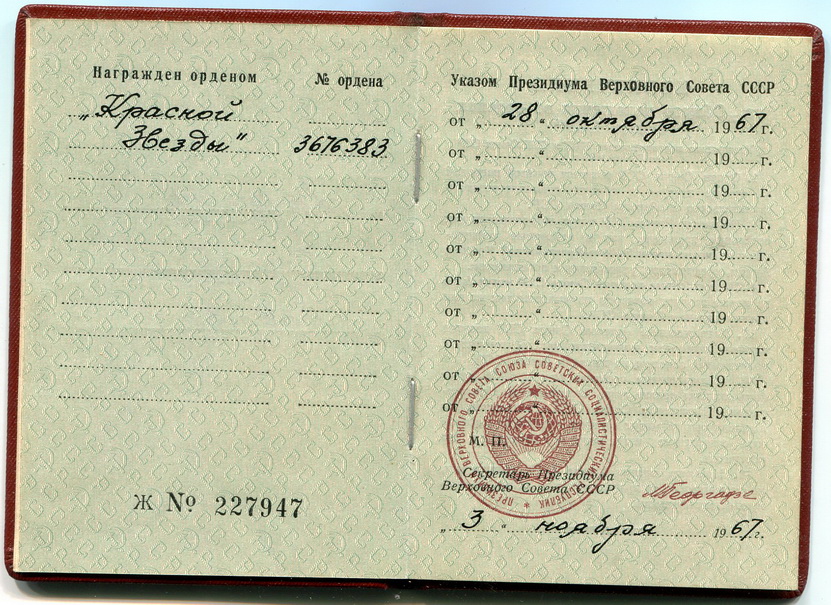 Награжден орденом № ордена
„Красной
Звезды" 3676383
Ж № 227947
Указом Президиума Верховного Совета СССР
от „ 28 “ октября 1967 г.
от „ “ 19 г.
от „ “ 19 г.
от „ “ 19 г.
от „ “ 19 г.
от „ “ 19 г.
от „ “ 19 г.
от „ “ 19 г.
от „ “ 19 г.
от „ “ 19 г.
М. П.
ПРЕЗИДИУМ ВЕРХОВНОГО СОВЕТА СОЮЗА СОВЕТСКИХ СОЦИАЛИСТИЧЕСКИХ РЕСПУБЛИК
Секретарь Президиума
Верховного Совета СССР МГеоргадзе
„ 3 “ ноября 1967 г.